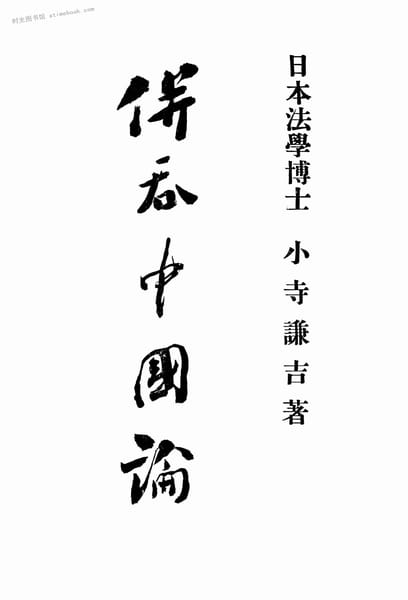 时光图书馆 atimebook.com
日本法學博士 小寺謙吉著
併吞中國論